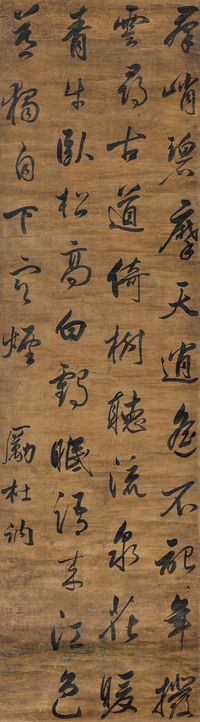 羣峭碧摩天逍遙不記年撥
雲尋古道倚樹聽流泉花暖
青牛臥松高白鶴眠語來江色
暮獨自下寒煙 勵杜訥